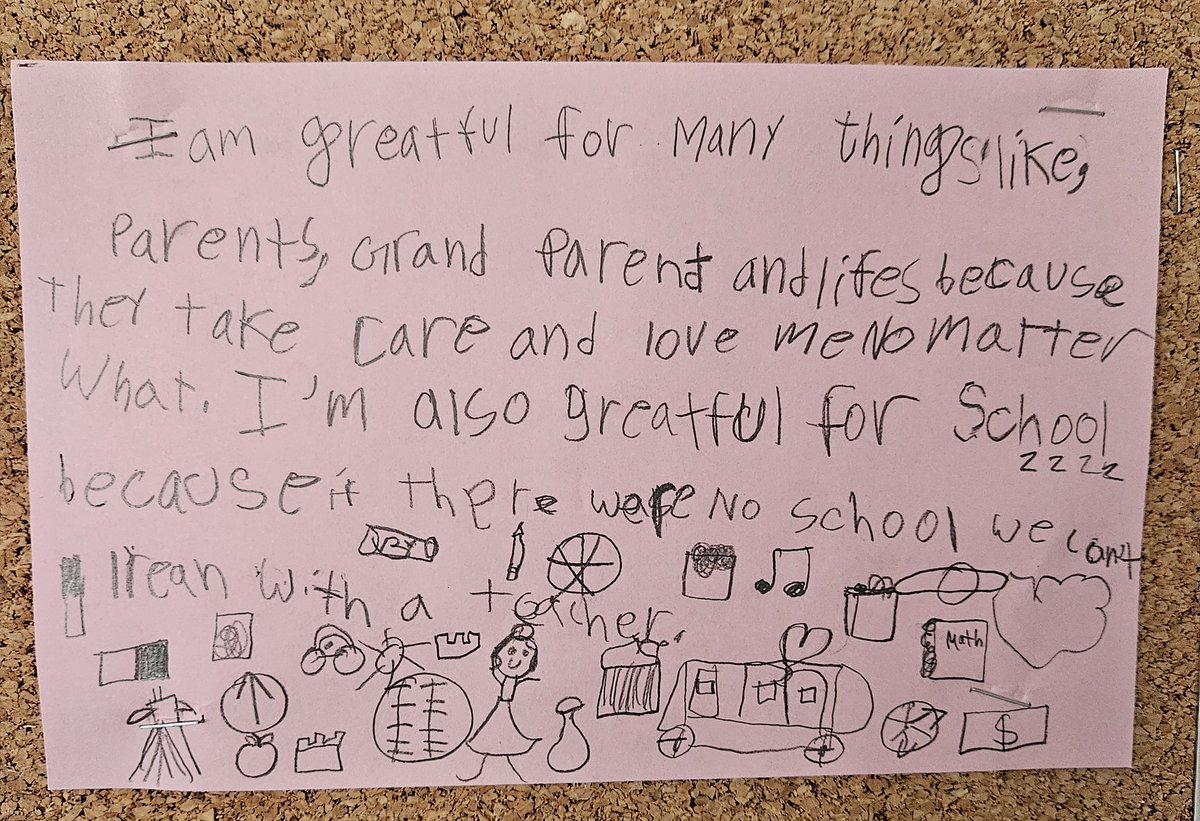 I am greatful for many things like,
Parents, Grand Parent and lifes because
they take care and love me no matter
what. I'm also greatful for School
zzzz
because if there were no school we cant
lrean with a teacher.
Math
$